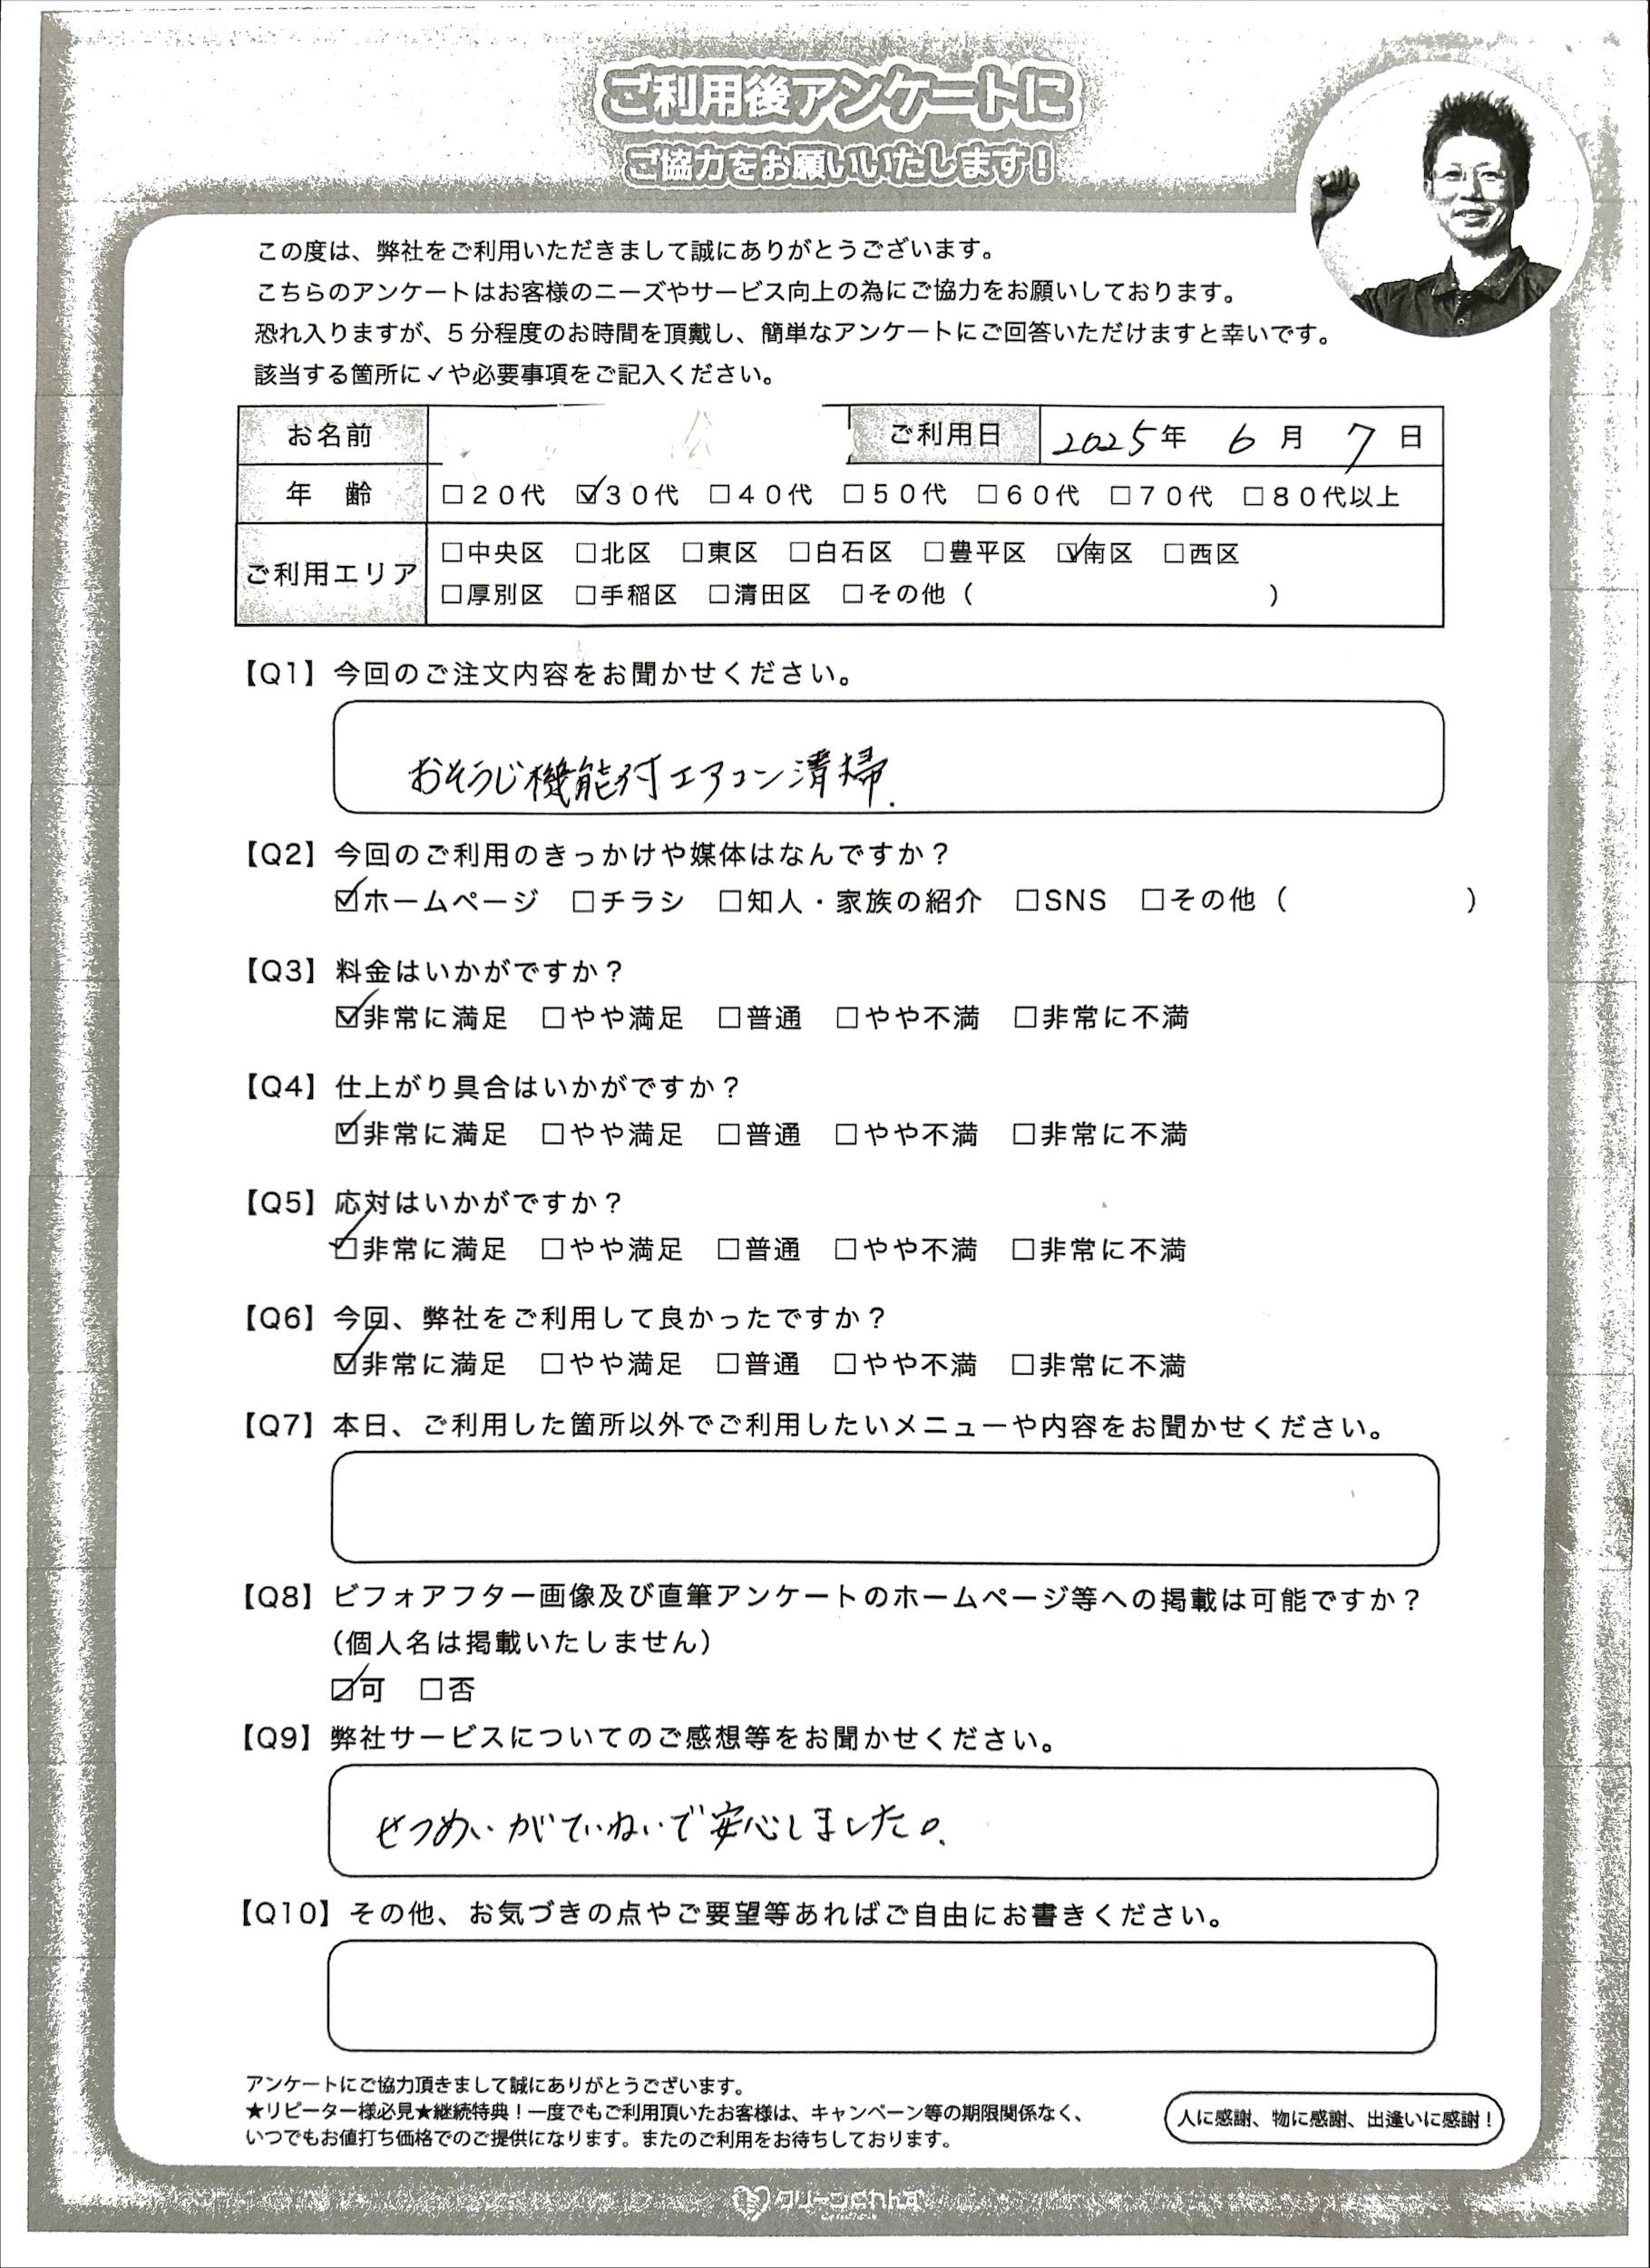 ご利用後アンケートに
ご協力をお願いいたします!
この度は、弊社をご利用いただきまして誠にありがとうございます。
こちらのアンケートはお客様のニーズやサービス向上の為にご協力をお願いしております。
恐れ入りますが、5分程度のお時間を頂戴し、簡単なアンケートにご回答いただけますと幸いです。
該当する箇所に✓や必要事項をご記入ください。
お名前 ご利用日 2025年 6月 7日
年 齢 □20代 ☑30代 □40代 □50代 □60代 □70代 □80代以上
ご利用エリア □中央区 □北区 □東区 □白石区 □豊平区 ☑南区 □西区
□厚別区 □手稲区 □清田区 □その他( )
【Q1】今回のご注文内容をお聞かせください。
おそうじ機能付エアコン清掃.
【Q2】今回のご利用のきっかけや媒体はなんですか?
☑ホームページ □チラシ □知人・家族の紹介 □SNS □その他( )
【Q3】料金はいかがですか?
☑非常に満足 □やや満足 □普通 □やや不満 □非常に不満
【Q4】仕上がり具合はいかがですか?
☑非常に満足 □やや満足 □普通 □やや不満 □非常に不満
【Q5】応対はいかがですか?
☑非常に満足 □やや満足 □普通 □やや不満 □非常に不満
【Q6】今回、弊社をご利用して良かったですか?
☑非常に満足 □やや満足 □普通 □やや不満 □非常に不満
【Q7】本日、ご利用した箇所以外でご利用したいメニューや内容をお聞かせください。
【Q8】ビフォアフター画像及び直筆アンケートのホームページ等への掲載は可能ですか?
(個人名は掲載いたしません)
☑可 □否
【Q9】弊社サービスについてのご感想等をお聞かせください。
せつめいがていねいで安心しました。
【Q10】その他、お気づきの点やご要望等あればご自由にお書きください。
アンケートにご協力頂きまして誠にありがとうございます。
★リピーター様必見★継続特典!一度でもご利用頂いたお客様は、キャンペーン等の期限関係なく、
いつでもお値打ち価格でのご提供になります。またのご利用をお待ちしております。
人に感謝、物に感謝、出逢いに感謝!